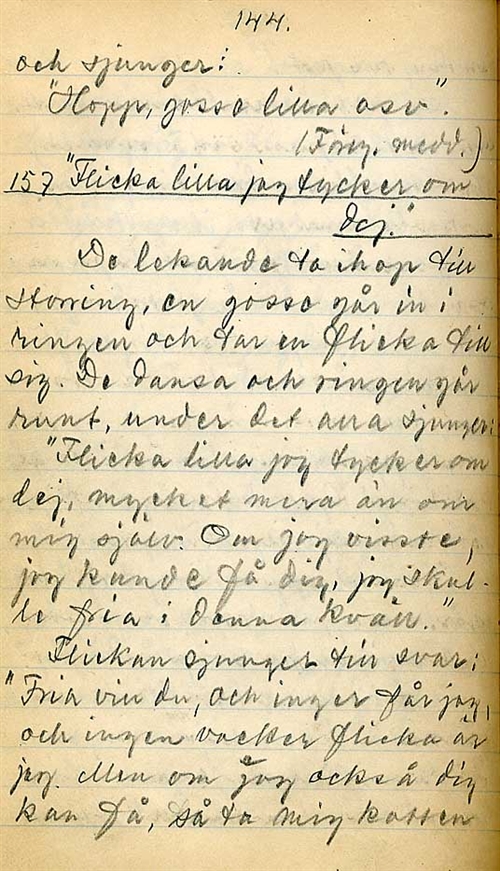 144.
och sjunger:
"Hopp, gosse lilla osv".
(Föreg. medd.)
157 "Flicka lilla jag tycker om
dej."
De lekande ta ihop till
storring, en gosse går in i
ringen och tar en flicka till
sig. De dansa och ringen går
runt, under det alla sjunger:
"Flicka lilla jag tycker om
dej, mycket mera än om
mig själv. Om jag visste,
jag kunde få dig, jag skul-
le fria i denna kväll."
Flickan sjunger till svar:
"Fria vill du, och inger får jag,
och ingen vacker flicka är
jag. Men om jag också dig
kan få, så ta mig katten